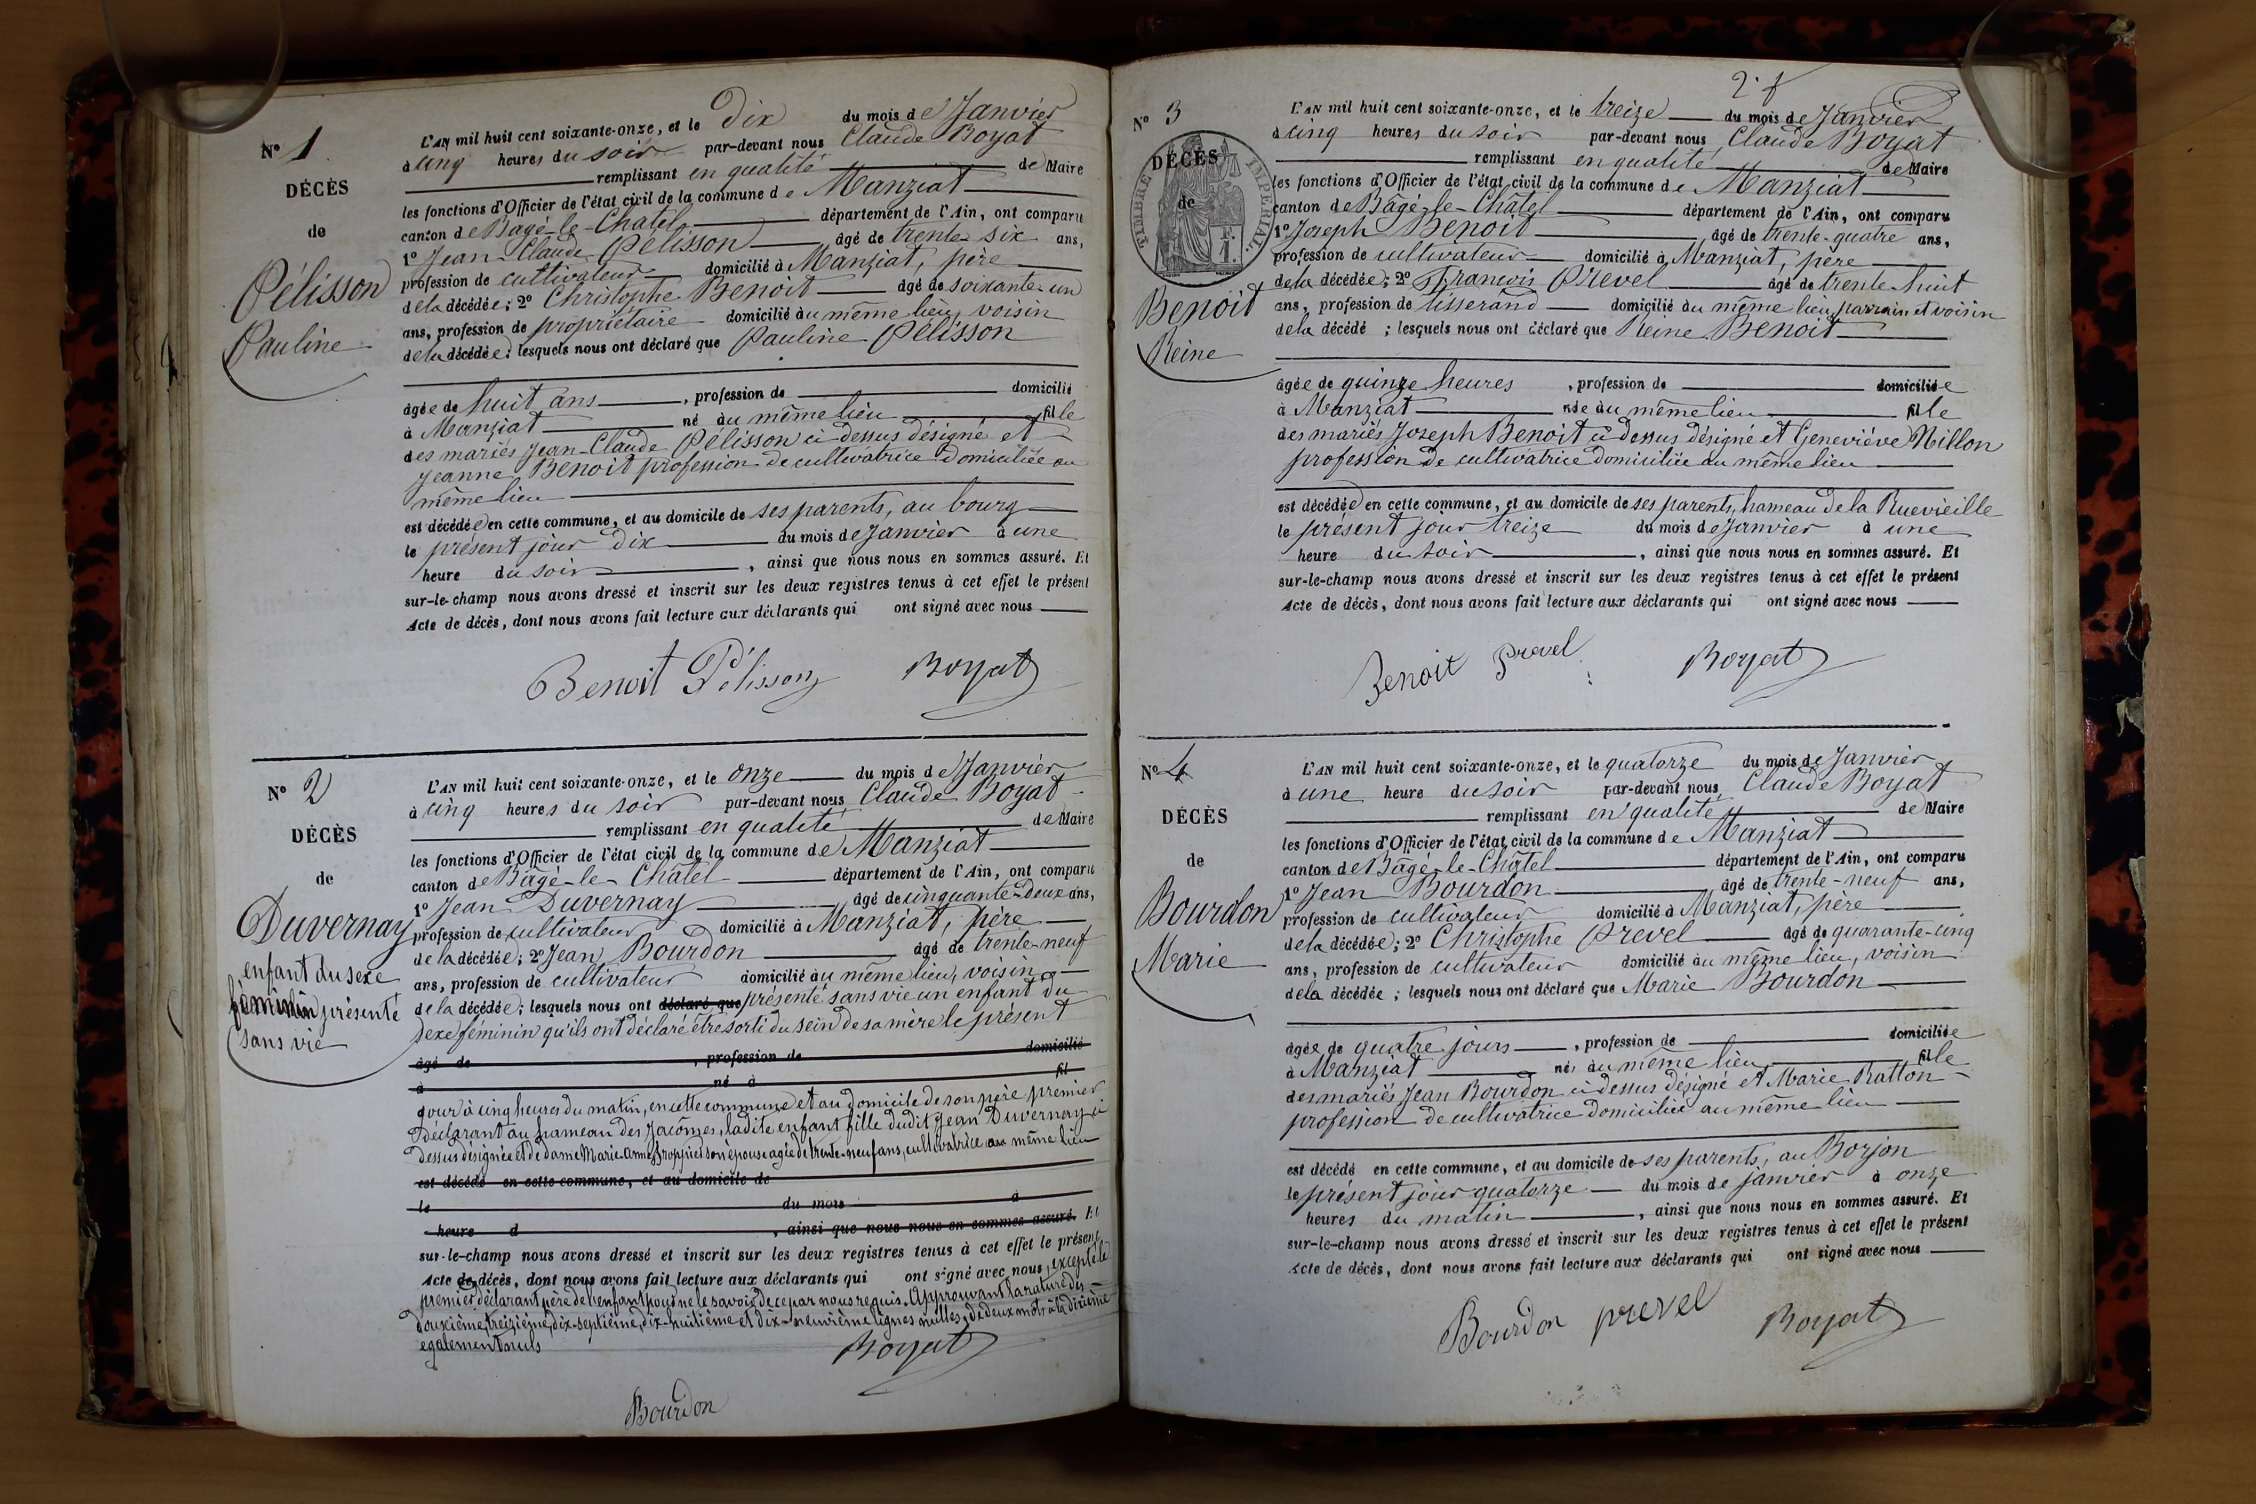 N° 1
DÉCÈS
de
Pélisson
Pauline
L'AN mil huit cent soixante-onze, et le dix du mois de Janvier
à cinq heures du soir par-devant nous Claude Boyat
remplissant en qualité de Maire
les fonctions d'Officier de l'état civil de la commune de Manziat
canton de Bâgé-le-Châtel département de l'Ain, ont comparu
1° Jean-Claude Pélisson âgé de trente-six ans,
profession de cultivateur domicilié à Manziat, père
de la décédée; 2° Christophe Benoit âgé de soixante-un
ans, profession de propriétaire domicilié au même lieu, voisin
de la décédée; lesquels nous ont déclaré que Pauline Pélisson
âgée de huit ans, profession de domicilié
à Manziat né au même lieu fille
des mariés Jean-Claude Pélisson ci-dessus désigné et
Jeanne Benoit profession de cultivatrice domiciliée au
même lieu
est décédée en cette commune, et au domicile de ses parents, au bourg
le présent jour dix du mois de Janvier à une
heure du soir, ainsi que nous nous en sommes assuré. Et
sur-le-champ nous avons dressé et inscrit sur les deux registres tenus à cet effet le présent
Acte de décès, dont nous avons fait lecture aux déclarants qui ont signé avec nous
Benoit Pélisson Boyat
N° 2
DÉCÈS
de
Duvernay
enfant du sexe
féminin présenté
sans vie
L'AN mil huit cent soixante-onze, et le onze du mois de Janvier
à cinq heures du soir par-devant nous Claude Boyat
remplissant en qualité de Maire
les fonctions d'Officier de l'état civil de la commune de Manziat
canton de Bâgé-le-Châtel département de l'Ain, ont comparu
1° Jean Duvernay âgé de cinquante-deux ans,
profession de cultivateur domicilié à Manziat, père
de la décédée; 2° Jean Bourdon âgé de trente-neuf
ans, profession de cultivateur domicilié au même lieu, voisin
de la décédée; lesquels nous ont déclaré que présenté sans vie un enfant du
sexe féminin qu'ils ont déclaré être sorti du sein de sa mère le présent
âgé de , profession de domicilié
à né à fil
jour à cinq heures du matin, en cette commune et au domicile de son père premier
déclarant au hameau des Jacômes, ladite enfant fille dudit Jean Duvernay ci
dessus désigné et de dame Marie-Anne son épouse agée de trente-neuf ans, cultivatrice au même lieu
est décédé en cette commune, et au domicile de
le du mois à
heure d , ainsi que nous nous en sommes assuré. Et
sur-le-champ nous avons dressé et inscrit sur les deux registres tenus à cet effet le présent
Acte de décès, dont nous avons fait lecture aux déclarants qui ont signé avec nous, excepté le
premier déclarant père de l'enfant pour ne le savoir de ce par nous requis. Approuvant la rature des
douzième, treizième, dix-septième, dix-huitième et dix-neuvième lignes nulles, de deux mots à la dixième
également nuls
Boyat
Bourdon
2. f
N° 3
DÉCÈS
de
TIMBRE IMPÉRIAL
1 F.
Benoit
Reine
L'AN mil huit cent soixante-onze, et le treize du mois de Janvier
à cinq heures du soir par-devant nous Claude Boyat
remplissant en qualité de Maire
les fonctions d'Officier de l'état civil de la commune de Manziat
canton de Bâgé-le-Châtel département de l'Ain, ont comparu
1° Joseph Benoit âgé de trente-quatre ans,
profession de cultivateur domicilié à Manziat, père
de la décédée; 2° François Prevel âgé de trente-huit
ans, profession de tisserand domicilié au même lieu, parrain et voisin
de la décédé ; lesquels nous ont déclaré que Reine Benoit
âgée de quinze heures , profession de domiciliée
à Manziat née au même lieu fille
des mariés Joseph Benoit ci-dessus désigné et Geneviève Nillon
profession de cultivatrice domiciliée au même lieu
est décédée en cette commune, et au domicile de ses parents, hameau de la Ruevieille
le présent jour treize du mois de Janvier à une
heure du soir, ainsi que nous nous en sommes assuré. Et
sur-le-champ nous avons dressé et inscrit sur les deux registres tenus à cet effet le présent
Acte de décès, dont nous avons fait lecture aux déclarants qui ont signé avec nous
Benoit prevel Boyat
N° 4
DÉCÈS
de
Bourdon
Marie
L'AN mil huit cent soixante-onze, et le quatorze du mois de Janvier
à une heure du soir par-devant nous Claude Boyat
remplissant en qualité de Maire
les fonctions d'Officier de l'état civil de la commune de Manziat
canton de Bâgé-le-Châtel département de l'Ain, ont comparu
1° Jean Bourdon âgé de trente-neuf ans,
profession de cultivateur domicilié à Manziat, père
de la décédée; 2° Christophe Prevel âgé de quarante-cinq
ans, profession de cultivateur domicilié au même lieu, voisin
de la décédée ; lesquels nous ont déclaré que Marie Bourdon
âgée de quatre jours , profession de domiciliée
à Manziat née au même lieu fille
des mariés Jean Bourdon ci-dessus désigné et Marie Ratton
profession de cultivatrice domiciliée au même lieu
est décédé en cette commune, et au domicile de ses parents, au Borjon
le présent jour quatorze du mois de janvier à onze
heures du matin, ainsi que nous nous en sommes assuré. Et
sur-le-champ nous avons dressé et inscrit sur les deux registres tenus à cet effet le présent
Acte de décès, dont nous avons fait lecture aux déclarants qui ont signé avec nous
Bourdon prevel Boyat